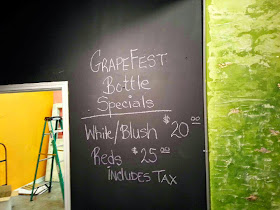 GRAPEFEST
Bottle
Specials
White/Blush $20.00
Reds $25.00
INCLUDES TAX